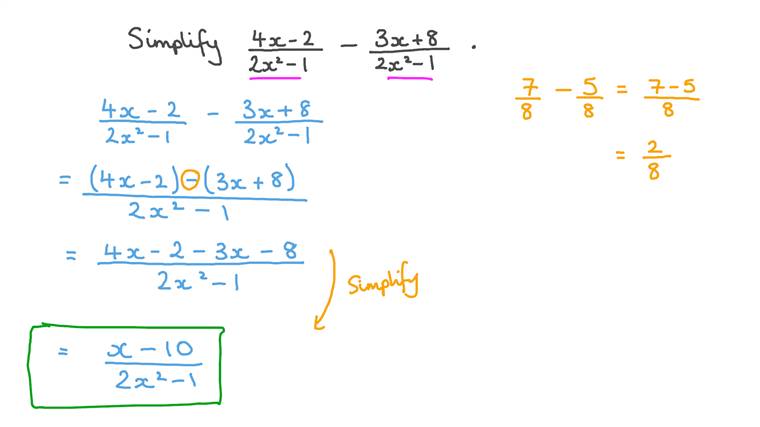 Simplify (4x-2)/(2x²-1) - (3x+8)/(2x²-1) .
(4x-2)/(2x²-1) - (3x+8)/(2x²-1)
= ((4x-2)-(3x+8))/(2x²-1)
= (4x-2-3x-8)/(2x²-1)
Simplify
= (x-10)/(2x²-1)
7/8 - 5/8 = (7-5)/8
= 2/8